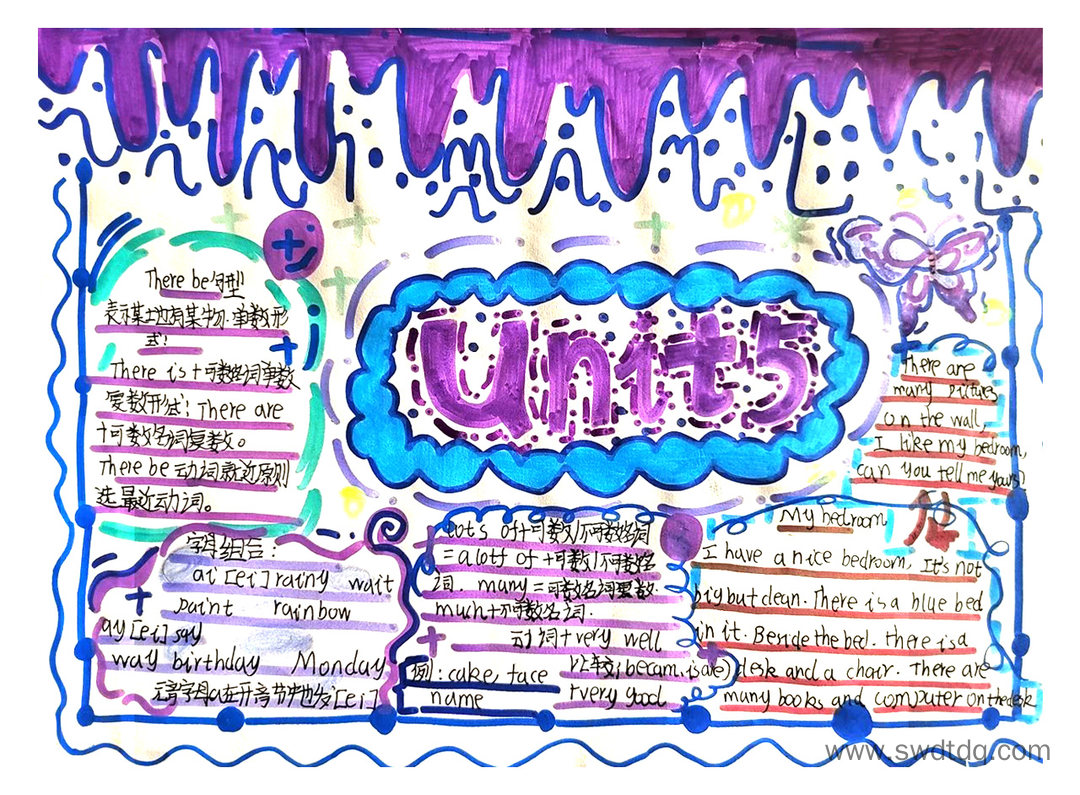 Unit 5
There be句型
表示某土也方有某物.单数形
式:
There is +可数名词单数
复数形式: There are
+可数名词复数。
There be 动词就近原则
选最近动词。
字母组合:
ai [ei] rainy wait
paint rainbow
ay [ei] say
way birthday Monday
元音字母a在开音节中也发[ei]
lots of+可数/不可数名词
=a lot of +可数/不可数名
词. many=可数名词复数
much+不可数名词.
动词+very well
例: cake, face
name
be(am.is.are)
+very good
There are
many pictures
on the wall,
I like my bedroom,
can you tell me yours?
My bedroom
I have a nice bedroom, It's not
big but clean. There is a blue bed
in it. Beside the bed. there is a
desk and a chair. There are
many books and computer on the desk
www.swdtdq.com